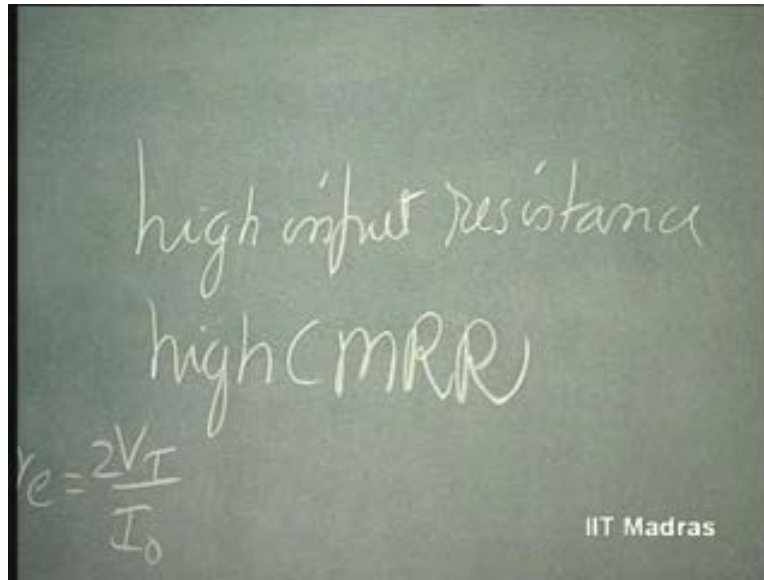 high input resistanc
high CMRR
re = 2VT / I0
IIT Madras